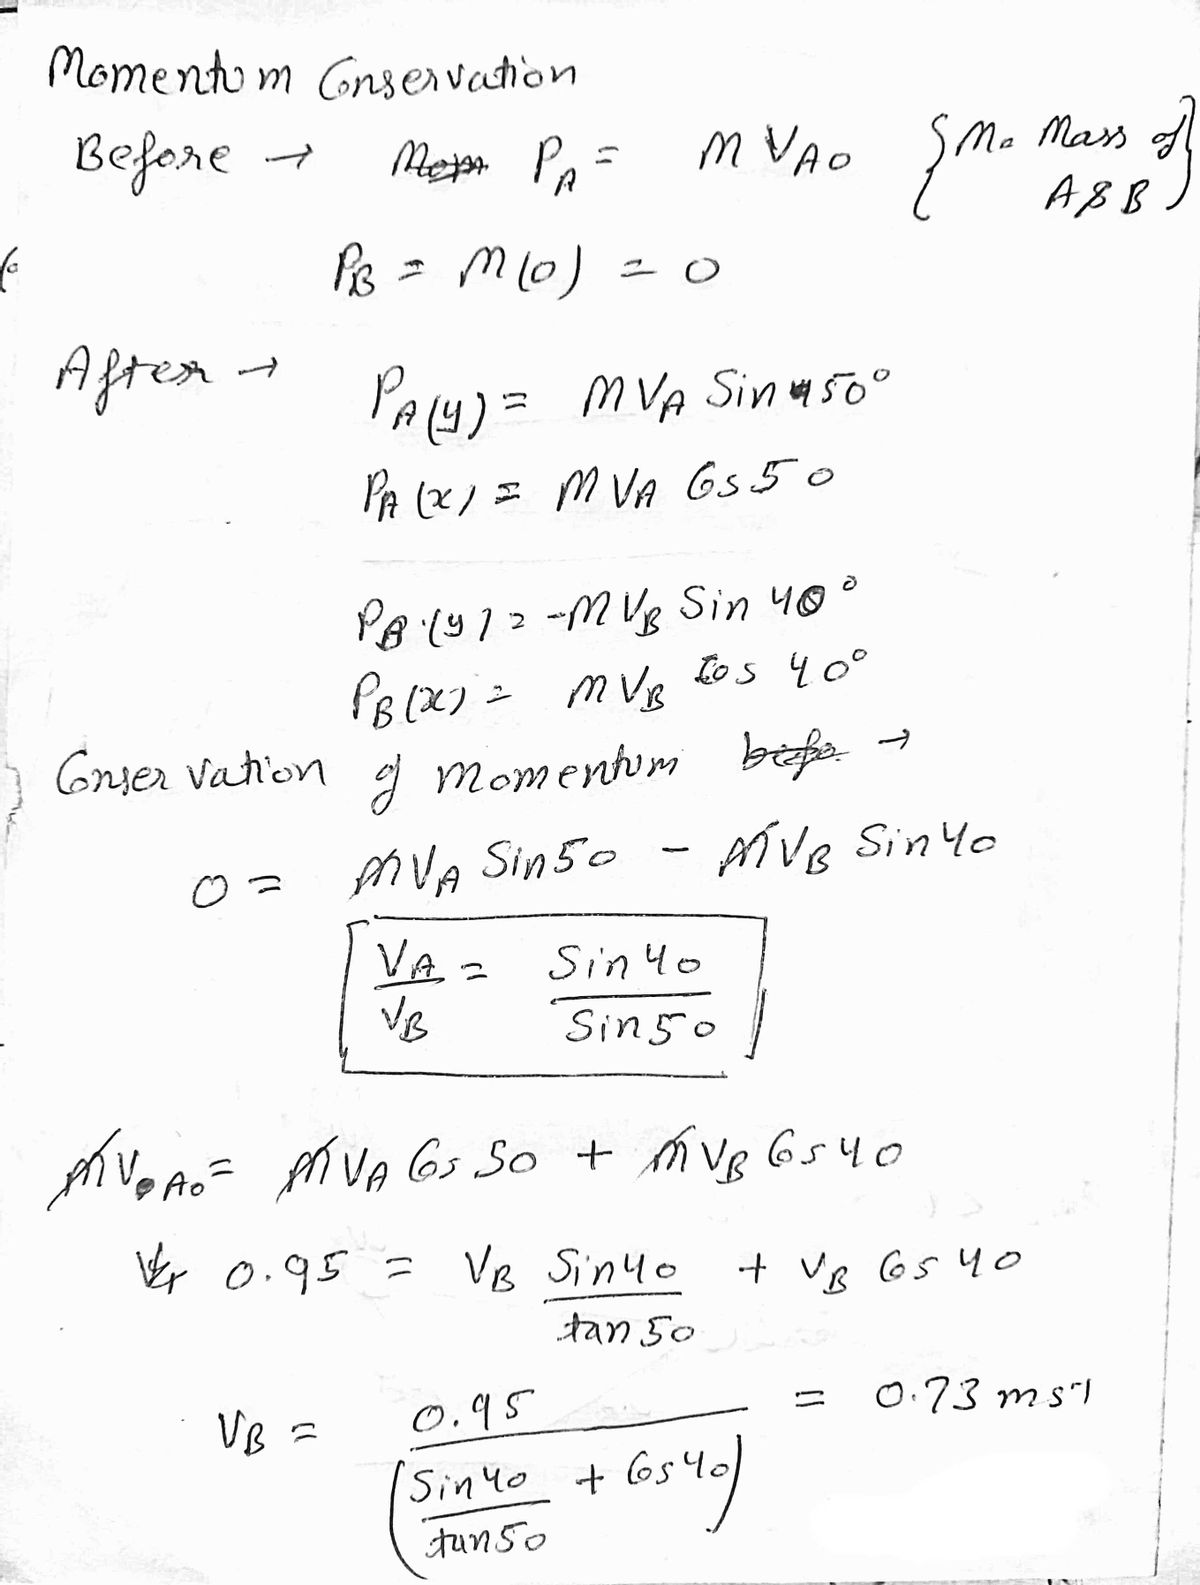 Momentum Conservation
Before → P_A = M V_A0 {M = Mass of A & B}
P_B = M(0) = 0
After →
P_A(y) = M V_A Sin 50°
P_A(x) = M V_A Cos 50
P_B(y) = -M V_B Sin 40°
P_B(x) = M V_B Cos 40°
Conservation of momentum →
0 = M V_A Sin 50 - M V_B Sin 40
V_A / V_B = Sin 40 / Sin 50
M V_A0 = M V_A Cos 50 + M V_B Cos 40
0.95 = V_B Sin 40 / tan 50 + V_B Cos 40
V_B = 0.95 / (Sin 40 / tan 50 + Cos 40) = 0.73 ms⁻¹